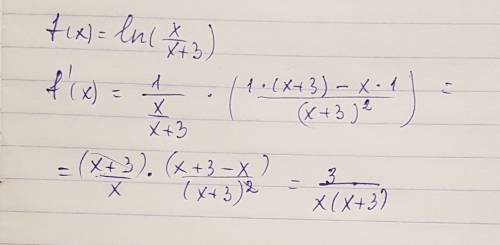 f(x) = ln(x/(x+3))
f'(x) = 1/(x/(x+3)) · ((1·(x+3) − x·1)/(x+3)²) =
= (x+3)/x · (x+3−x)/(x+3)² = 3/(x(x+3))